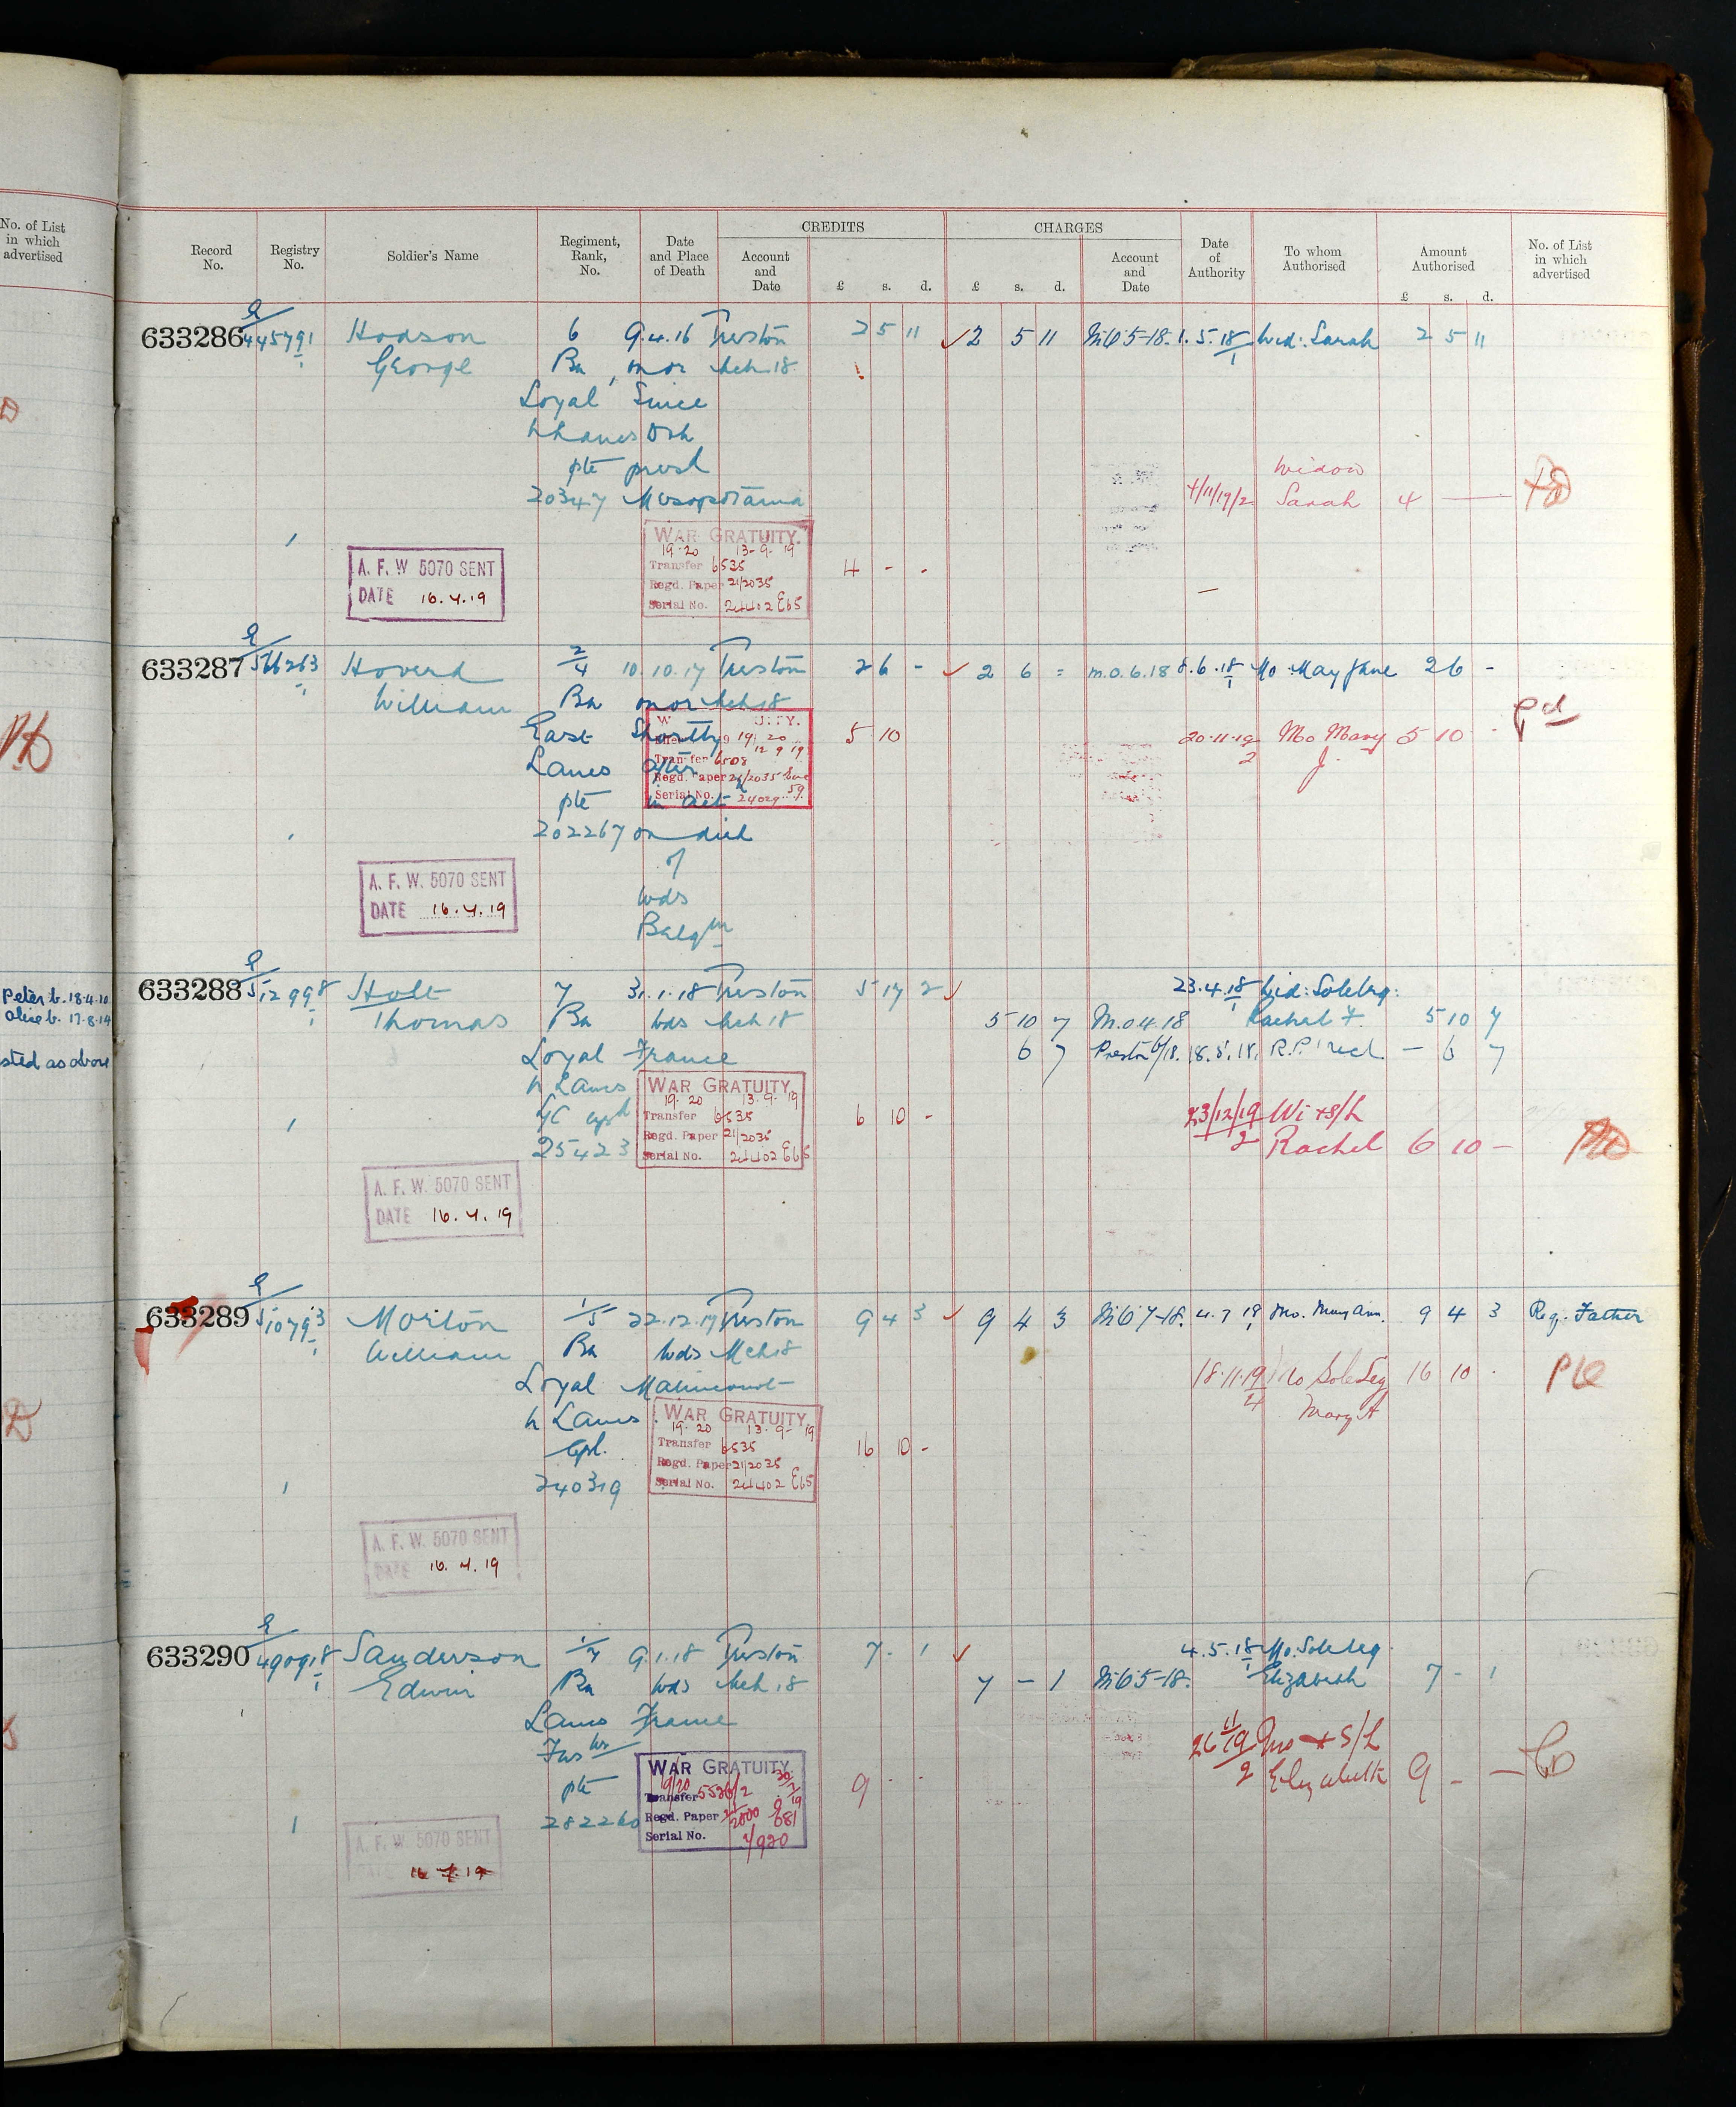 No. of List
in which
advertised
Peter b. 18.4.10
Alice b. 17.8.14
sted as above
CREDITS CHARGES
Record No. Registry No. Soldier's Name Regiment, Rank, No. Date and Place of Death Account and Date £ s. d. £ s. d. Account and Date Date of Authority To whom Authorised Amount Authorised £ s. d. No. of List in which advertised
633286 E/445791 Hodson 6 9.4.16 Preston 2 5 11 2 5 11 M.O 5-18. 1.5.18 Wid: Sarah 2 5 11
George Bn on or Mch.18
Loyal Since
N Lancs Dth
pte presd
20347 Mesopotamia
4/11/19/2 Widow Sarah 4
WAR GRATUITY.
19-20 13-9-19
Transfer 6535
Regd. Paper 21/2035
Serial No. 24402 E65
4 - -
A. F. W 5070 SENT
DATE 16.4.19
633287 E/566263 Hoverd 2/4 10.10.17 Preston 2 6 - 2 6 = M.O.6.18 8.6.18 Mo: May Jane 2 6 -
William Bn on or Mch 18
East Shortly
Lancs after
pte in act
202267 on died
of
wds
Belgm
WAR GRATUITY.
19 20
12 9 19
Transfer 6508
Regd. Paper 21/2035
Serial No. 24029 59
5 10
20.11.19/2 Mo Mary J. 5 10 - Pd
A. F. W. 5070 SENT
DATE 16.4.19
633288 E/512998 Holt 7 31.1.18 Preston 5 17 2 23.4.18 Wid: Soleleg:
Thomas Bn wds Mch 18 5 10 7 M.O 4.18 Rachel F. 5 10 7
Loyal France 6 7 Preston 6/18. 18.5.18. R.P. recd. - 6 7
N Lancs
L/C
25423
WAR GRATUITY.
19-20 13-9-19
Transfer 6535
Regd. Paper 21/2035
Serial No. 24402 E65
6 10 -
23/12/19/2 Wi + S/L Rachel 6 10 -
A. F. W. 5070 SENT
DATE 16.4.19
633289 E/510793 Morton 1/5 22.12.17 Preston 9 4 3 9 4 3 M.O 7-18. 4.7.18 Mo. Mary Ann. 9 4 3 Reg. Father
William Bn wds Mch 18
Loyal
N Lancs
Cpl.
240319
WAR GRATUITY
19-20 13-9-19
Transfer 6535
Regd. Paper 21/2035
Serial No. 24402 E65
16 10 -
18.11.19/4 Mo Sole Leg Mary A 16 10 -
A. F. W. 5070 SENT
DATE 16.4.19
633290 E/490918 Sanderson 1/7 9.1.18 Preston 7 - 1 4.5.18 Mo: Sole leg.
Edwin Bn wds Mch.18 7 - 1 M.O 5-18. Elizabeth 7 - 1
Lancs France
Fusrs
pte
282260
WAR GRATUITY.
19/20
Transfer 5526/2
Regd. Paper
Serial No. 1/920
9 - -
26 11/19/2 Mo + S/L Elizabeth 9 - -
A. F. W. 5070 SENT
DATE 16.4.19